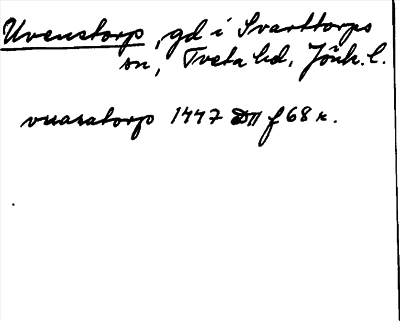 Uvenstorp, gd i Svarttorps
sn, Tveta hd, Jönk. l.
vuasatorp 1447 f 68 r.